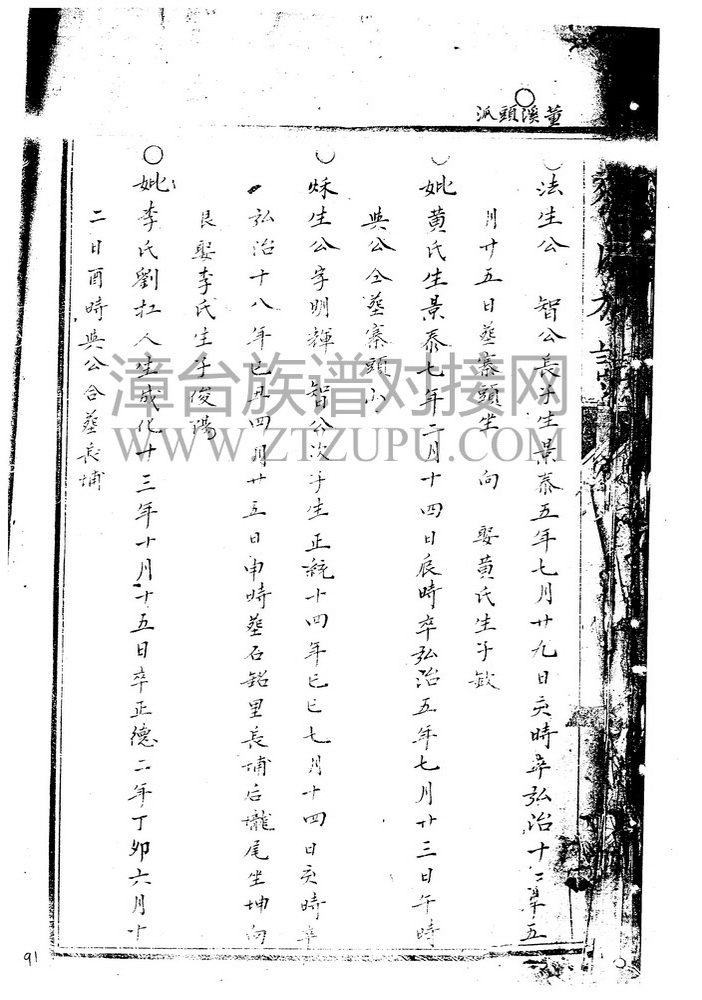 董溪頭派
法生公 智公長子生景泰五年七月廿九日亥時卒弘治十年五
月廿五日葬寨頭坐 向 娶黄氏生子欽
妣黄氏生景泰七年二月十四日辰時卒弘治五年七月廿三日午時
與公仝葬寨頭山
秌生公字明輝 智公次子生正統十四年巳巳七月十四日亥時卒
弘治十八年乙丑四月廿五日申時葬石銘里長埔后壠尾坐坤向
艮娶李氏生子俊陽
妣李氏劉扛人生成化廿三年十月十五日卒正德二年丁卯六月十
二日酉時與公合葬長埔
漳台族谱对接网
WWW.ZTZUPU.COM
91